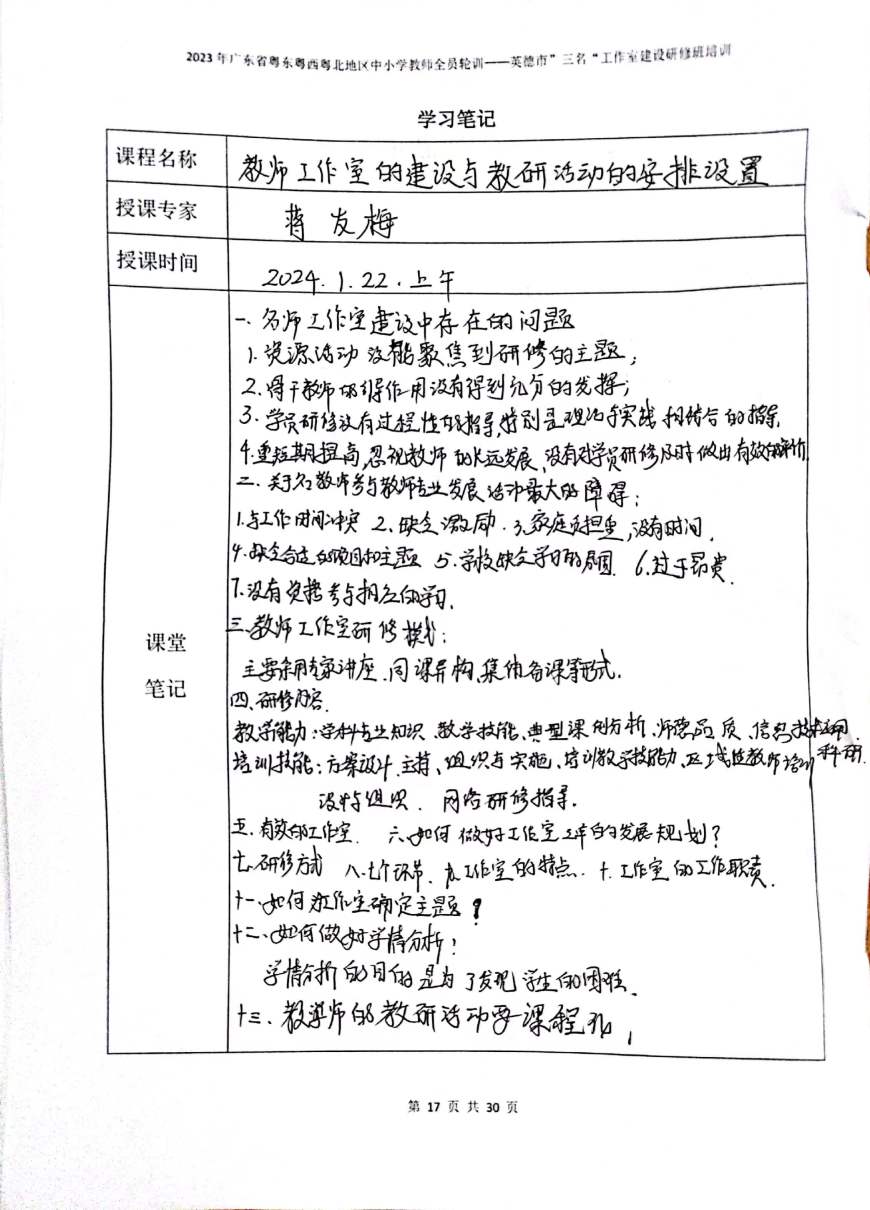 2023年广东省粤东粤西粤北地区中小学教师全员轮训——英德市”三名“工作室建设研修班培训
学习笔记
课程名称 教师工作室的建设与教研活动的安排设置
授课专家 蒋友梅
授课时间 2024.1.22.上午
课堂
笔记
一、名师工作室建设中存在的问题
1.资源活动没能聚焦到研修的主题;
2.骨干教师的引导作用没有得到充分的发挥;
3.学员研修没有过程性的指导,特别是理论与实践相结合的指导.
4.重短期提高,忽视教师的长远发展、没有对学员研修及时做出有效的评价.
二、关于名教师参与教师专业发展活动最大的障碍:
1.与工作时间冲突 2、缺乏激励.3、家庭负担重,没有时间.
4.缺乏合适的项目和主题 5.学校缺乏学习的氛围. 6.过于昂贵.
7.没有资格参与相应的学习.
三、教师工作室研修模式:
主要采用专家讲座、同课异构、集体备课等形式.
四、研修内容.
教学能力:学科专业知识、教学技能、典型课例分析、师德品质、信息技术应用.
培训技能:方案设计、主持、组织与实施、培训教学技能力、区域性教师培训 科研.
组织. 网络研修指导.
五、有效的工作室. 六、如何做好工作室三年的发展规划?
七.研修方式 八.七个环节. 九.工作室的特点. 十.工作室的工作职责.
十一、如何为工作室确定主题?
十二、如何做好学情分析?
学情分析的目的是为了发现学生的困难.
十三、教师的教研活动要课程化.
第 17 页 共 30 页